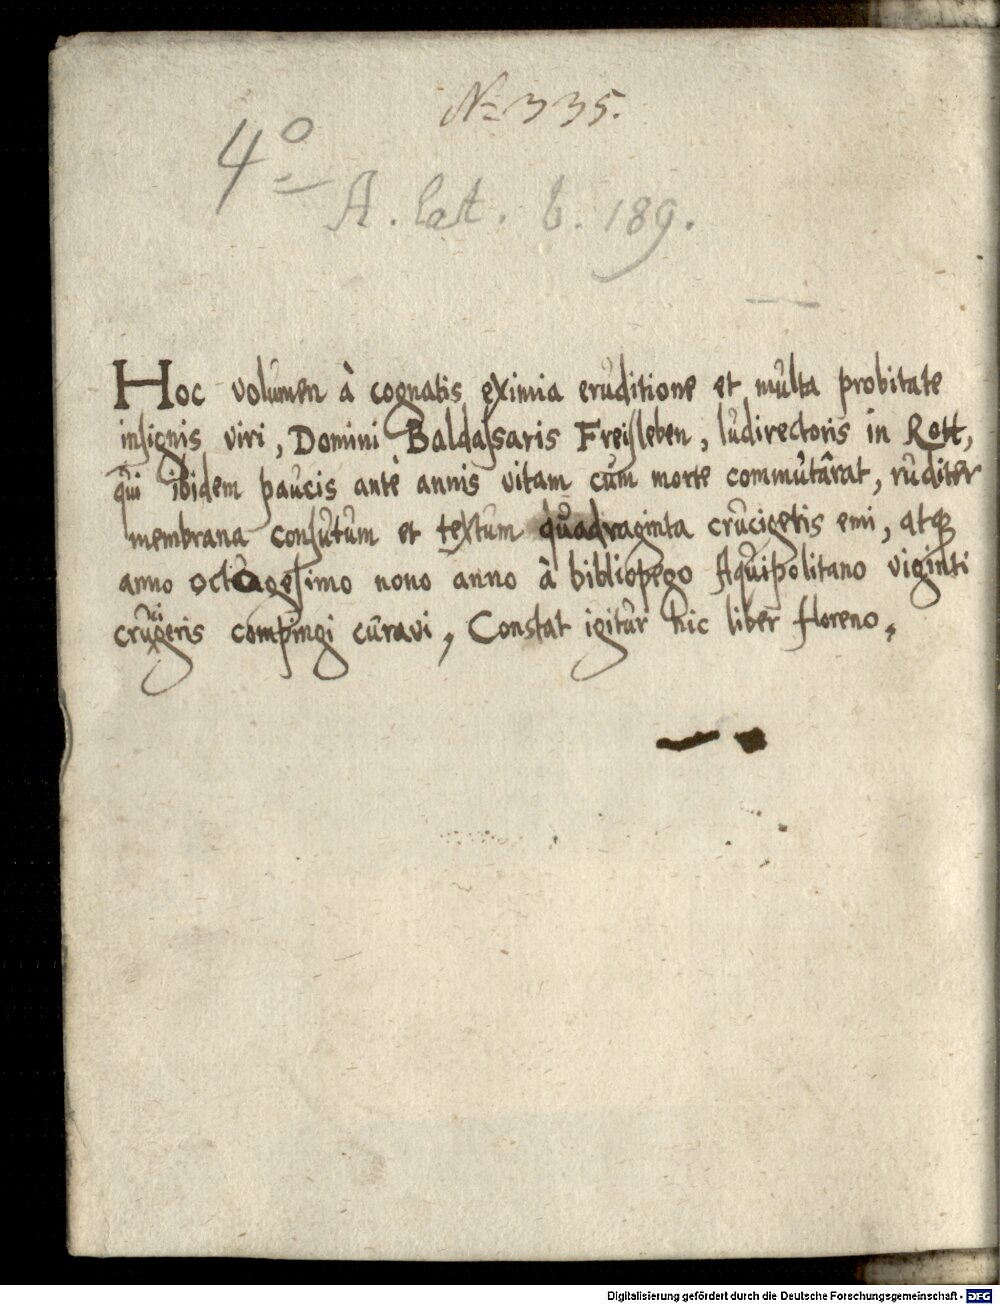 N= 335.
4º
A. lat. b. 189.
Hoc volumen à cognatis eximia eruditione et multa probitate
inſignis viri, Domini Baldaſsaris Freiſleben, ludirectoris in Rott,
qui ibidem paucis antè annis vitam cum morte commutârat, ruditer
membrana conſutum et textum quadraginta crucigeris emi, atqꝫ
anno octogeſimo nono anno à bibliopego Aquipolitano viginti
crucigeris compingi curavi, Constat igitur hic liber floreno,
Digitalisierung gefördert durch die Deutsche Forschungsgemeinschaft - DFG